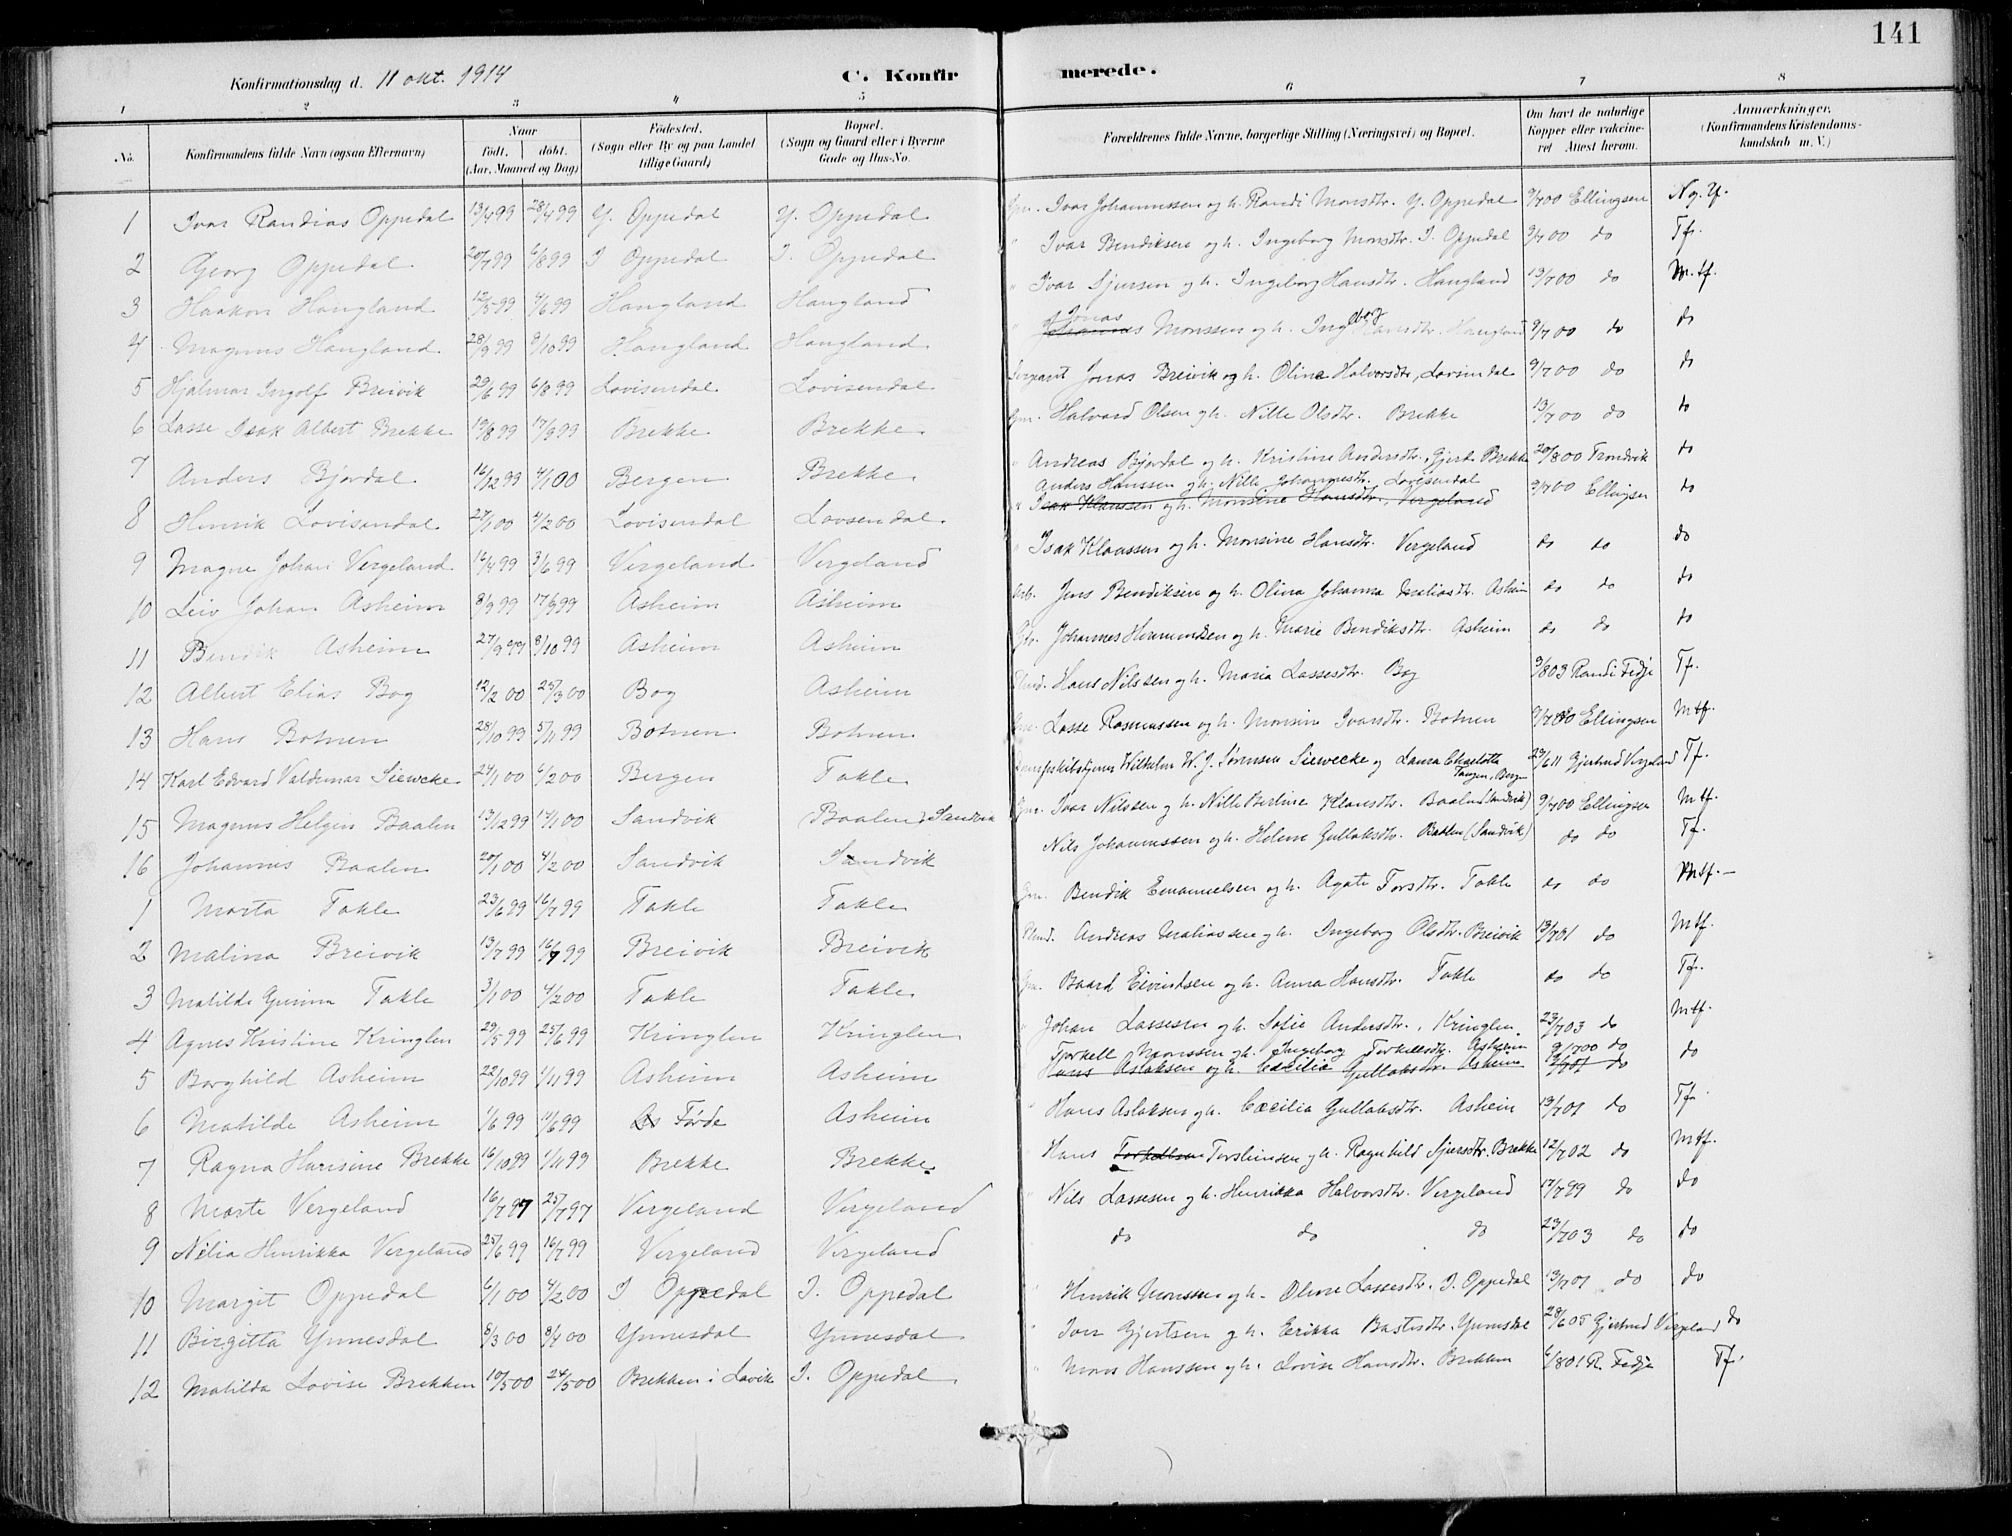 141
Konfirmationsdag d. 11 okt. 1914 C. Konfir merede.
1 2 3 4 5 6 7 8
No. Konfirmandens fulde Navn (ogsaa Efternavn) Naar født. døbt. (Aar, Maaned og Dag) Fødested. (Sogn eller By og paa Landet tillige Gaard) Bopæl. (Sogn og Gaard eller i Byerne Gade og Hus-No. Forældrenes fulde Navne, borgerlige Stilling (Næringsvei) og Bopæl. Om havt de naturlige Kopper eller vakcineret Attest herom. Anmærkninger. (Konfirmandens Kristendomskundskab m. V.)
1 Ivar Randias Oppedal 13/4 99 28/4 99 Y. Oppedal Y. Oppedal Gm. Ivar Johannessen og h. Randi Monsdtr. Y. Oppedal 9/7 00 Ellingsen
2 Georg Oppedal 20/7 99 6/8 99 I Oppedal I. Oppedal " Ivar Bendiksen og h. Ingeborg Monsdtr. I. Oppedal 9/7 00 do Tf.
3 Haakon Haugland 12/5 99 4/6 99 Haugland Haugland " Ivar Sjursen og h. Ingeborg Hansdtr. Haugland 13/7 00 do M.tf.
4 Magnus Haugland 28/9 99 8/10 99 Haugland Haugland " Jonas Johannes Monssen og h. Ingeborg Hansdtr. Haugland 9/7 00 do do
5 Hjalmar Ingolf Breivik 29/6 99 6/8 99 Lovisendal Lovisendal Sergeant Jonas Breivik og h. Oline Halvorsdtr, Lovisendal 9/7 00 do do
6 Lasse Isak Albert Brekke 19/8 99 17/9 99 Brekke Brekke Gm. Halvard Olsen og h. Nille Olsdtr. Brekke 13/7 00 do do
7 Anders Bjordal 16/12 99 4/1 00 Bergen Brekke " Andreas Bjordal og h. Kristine Andersdtr. Brekke 20/8 00 Trondvik do
8 Henrik Lovisendal 27/1 00 4/2 00 Lovisendal Lovsendal. Anders Hanssen og h. Nille Johannesdtr. Lovisendal 9/7 00 Ellingsen do
" Isak Klaussen og h. Monsine Hansdtr. Vergeland
9 Magne Johan Vergeland 16/4 99 3/6 99 Vergeland Vergeland " Isak Klaussen og h. Monsine Hansdtr. Vergeland do do do
10 Leiv Johan Asheim 8/9 99 17/9 99 Asheim Asheim Arb. Jens Bendiksen og h. Olina Johanna Maliasdtr. Asheim do do do
11 Bendik Asheim 27/9 99 8/10 99 Asheim Asheim Johannes Hermundsen og h. Marie Bendiksdtr. Asheim do do do
12 Albert Elias Bog 12/2 00 25/3 00 Bog Asheim Hans Nilssen og h. Maria Lassesdtr. Bog 9/8 03 Randi Fedje Tf.
13 Hans Botnen 28/10 99 5/11 99 Botnen Botnen Gm. Lasse Rasmussen og h. Monsine Ivarsdtr. Botnen 9/7 00 Ellingsen Mtf.
14 Karl Edvard Valdemar Siewcke 24/1 00 6/2 00 Bergen Takle Wilhelm W. J. Sørensen Siewecke og Laura Charlotta Tangen, Bergen 29/6 11 Gjertrud Vergeland Tf.
15 Magnus Helgin Baalen 13/12 99 14/1 00 Sandvik Baalen, Sandvik Gm. Ivar Nilssen og h. Nille Berline Klausdtr. Baalen (Sandvik) 9/7 00 Ellingsen Mtf.
16 Johannes Baalen 20/1 00 4/2 00 Sandvik Sandvik Nils Johannessen og h. Helene Gullaksdtr. Baalen (Sandvik) do do Tf.
1 Marta Takle 23/6 99 16/7 99 Takle Takle Gm. Bendik Emanuelsen og h. Agate Torsdtr. Takle do do Mtf.
2 Malina Breivik 13/7 99 16/7 99 Breivik Breivik Andreas Maliassen og h. Ingeborg Olsdtr. Breivik 13/7 01 do Mtf.
3 Matilde Gurina Takle 3/1 00 4/2 00 Takle Takle Gm. Baard Eivindsen og h. Anna Hansdtr. Takle do do Tf.
4 Agnes Kristine Kringlen 29/5 99 25/6 99 Kringlen Kringlen " Johan Lassesen og h. Sofie Andersdtr., Kringlen 23/7 03 do Mtf.
5 Borghild Asheim 22/10 99 1/11 99 Asheim Asheim Torkell Monssen og h. Ingeborg Torkellsdtr. Asheim 9/7 00 do do
Hans Aslaksen og h. Cæcilia Gullaksdtr. Asheim 13/7 01 do
6 Matilde Asheim 1/6 99 11/6 99 Førde Asheim " Hans Aslaksen og h. Cæcilia Gullaksdtr. Asheim 13/7 01 do Tf.
7 Ragna Hansine Brekke 16/10 99 1/11 99 Brekke Brekke. Hans Torkellsen Torsteinsen og h. Ragnhild Sjursdtr. Brekke 12/7 02 do Mtf.
8 Marte Vergeland 16/7 97 25/7 97 Vergeland Vergeland " Nils Lassesen og h. Henrikka Halvorsdtr. Vergeland 17/7 99 do do
9 Nilia Henrikka Vergeland 25/6 99 16/7 99 Vergeland Vergeland do do do 23/7 03 do do
10 Margit Oppedal 6/1 00 4/2 00 I Oppedal I. Oppedal " Henrik Monssen og h. Oline Lassesdtr. I. Oppedal 13/7 01 do do
11 Birgitta Ynnesdal 8/3 00 8/4 00 Ynnesdal Ynnesdal " Iver Gjertsen og h. Erikka Bastesdtr. Ynnesdal 28/6 05 Gjertrud Vergeland do
12 Matilda Lovise Brekken 10/5 00 24/5 00 Brekken i Lavik I. Oppedal " Mons Hanssen og h. Lovise Hansdtr. Brekken 6/8 01 R. Fedje Tf.